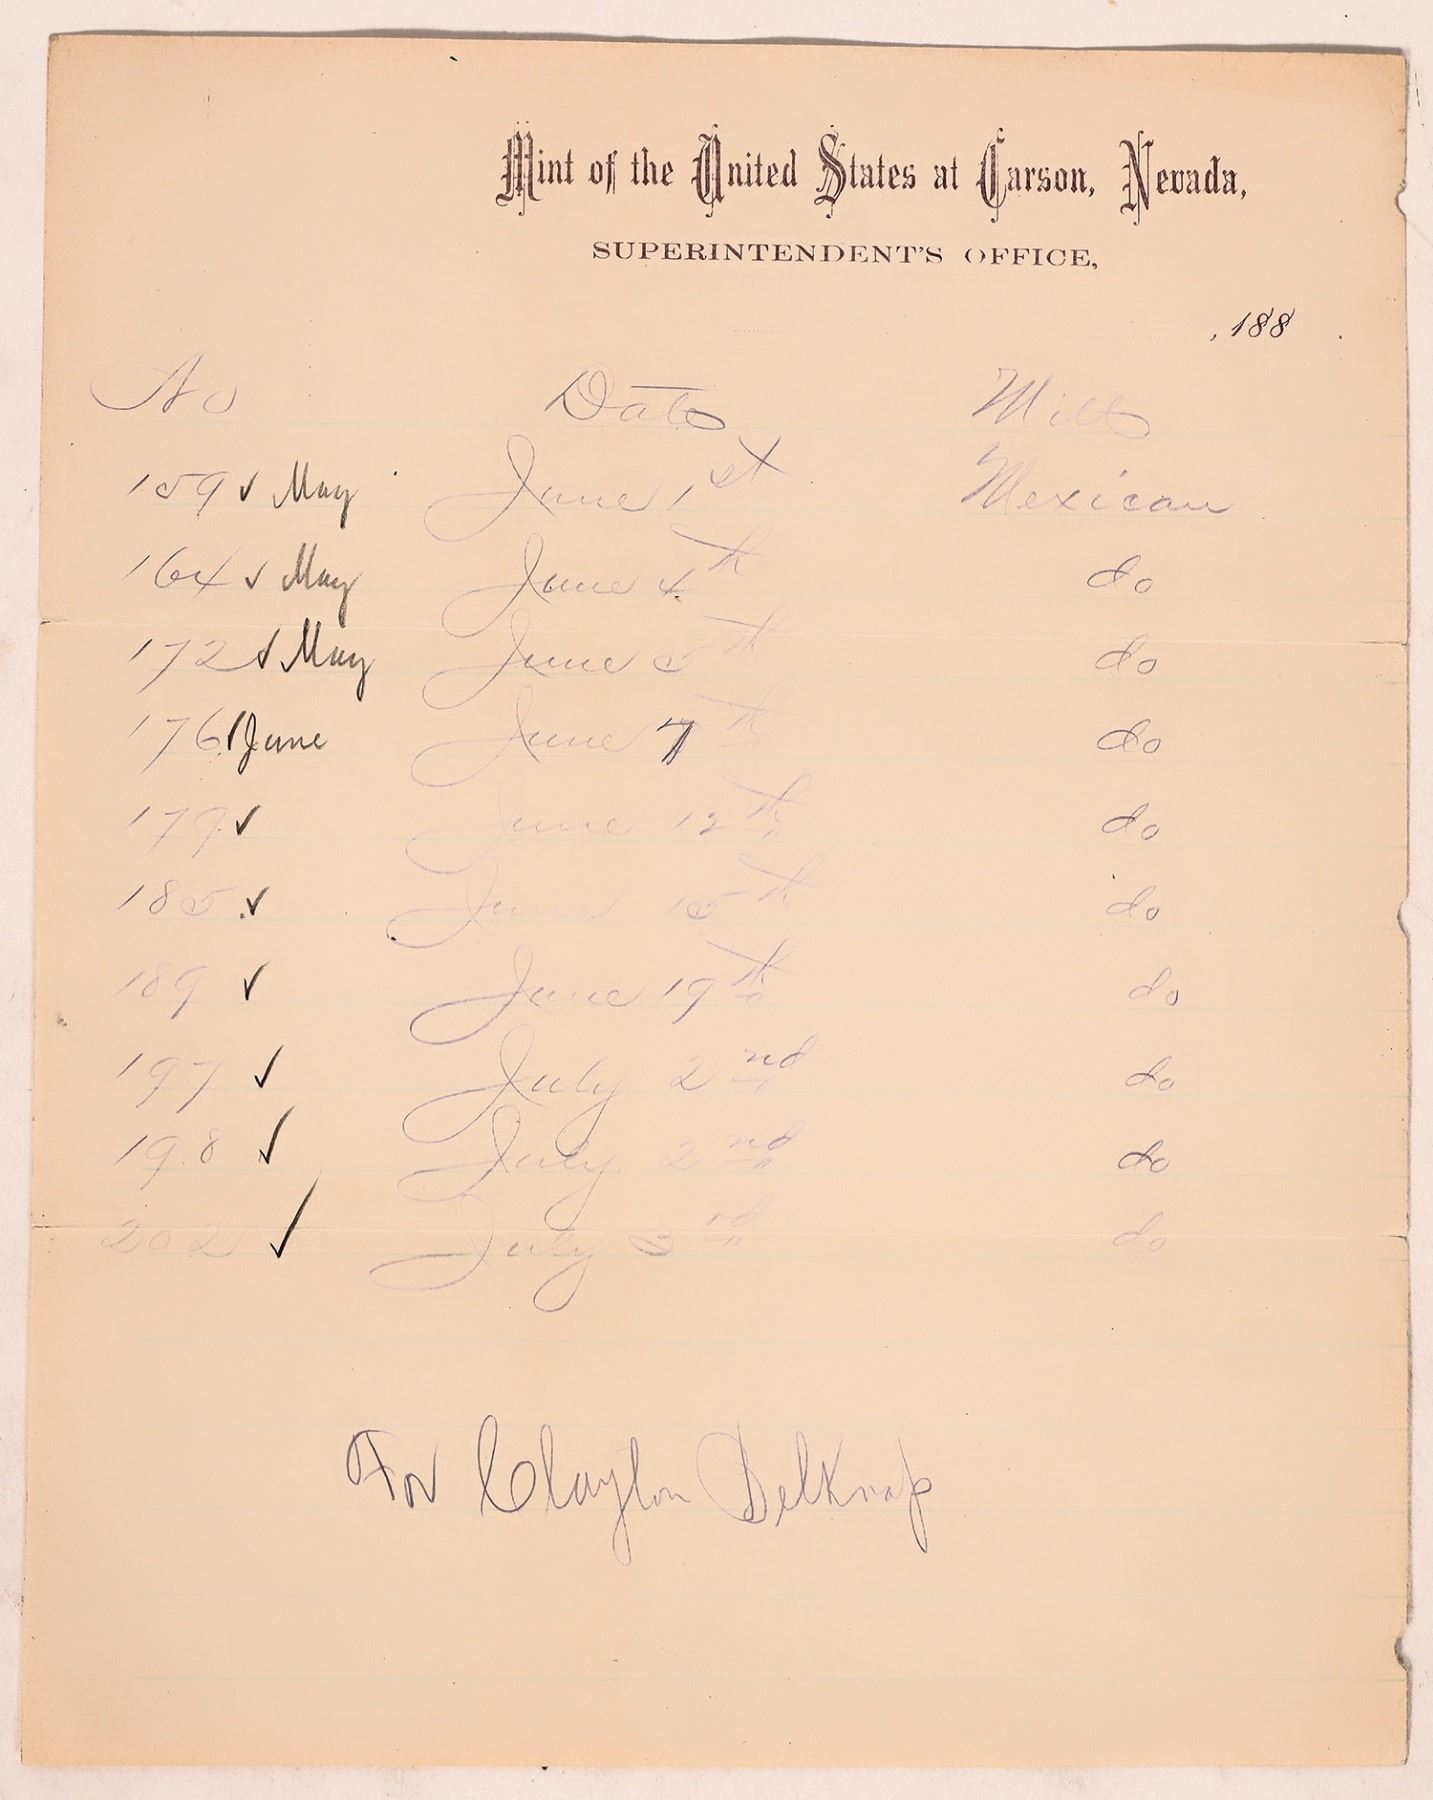 Mint of the United States at Carson, Nevada,
SUPERINTENDENT'S OFFICE,
, 188 .
No Date Mill
159 ✓ May June 1st Mexican
164 ✓ May June 4th do
172 ✓ May June 5th do
176 ✓ June June 7th do
179 ✓ June 12th do
185 ✓ June 15th do
189 ✓ June 19th do
197 ✓ July 2nd do
198 ✓ July 2nd do
202 ✓ July 3rd do
For Clayton Belknap